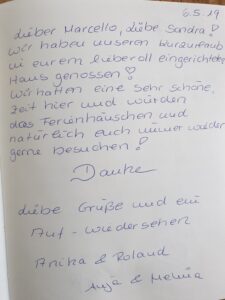 6.5.19
Lieber Marcello, liebe Sandra!
Wir haben unseren Kurzurlaub
in eurem liebevoll eingerichteten
Haus genossen!
Wir hatten eine sehr schöne
Zeit hier und würden
das Ferienhäuschen und
natürlich euch immer wieder
gerne besuchen!
Danke
Liebe Grüße und ein
Auf-wiedersehen
Anika & Roland
Anja &